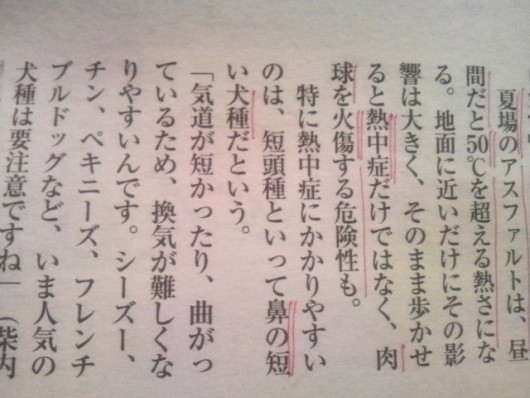 夏場のアスファルトは、昼
間だと50℃を超える熱さにな
る。地面に近いだけにその影
響は大きく、そのまま歩かせ
ると熱中症だけではなく、肉
球を火傷する危険性も。
特に熱中症にかかりやすい
のは、短頭種といって鼻の短
い犬種だという。
「気道が短かったり、曲がっ
ているため、換気が難しくな
りやすいんです。シーズー、
チン、ペキニーズ、フレンチ
ブルドッグなど、いま人気の
犬種は要注意ですね」（柴内